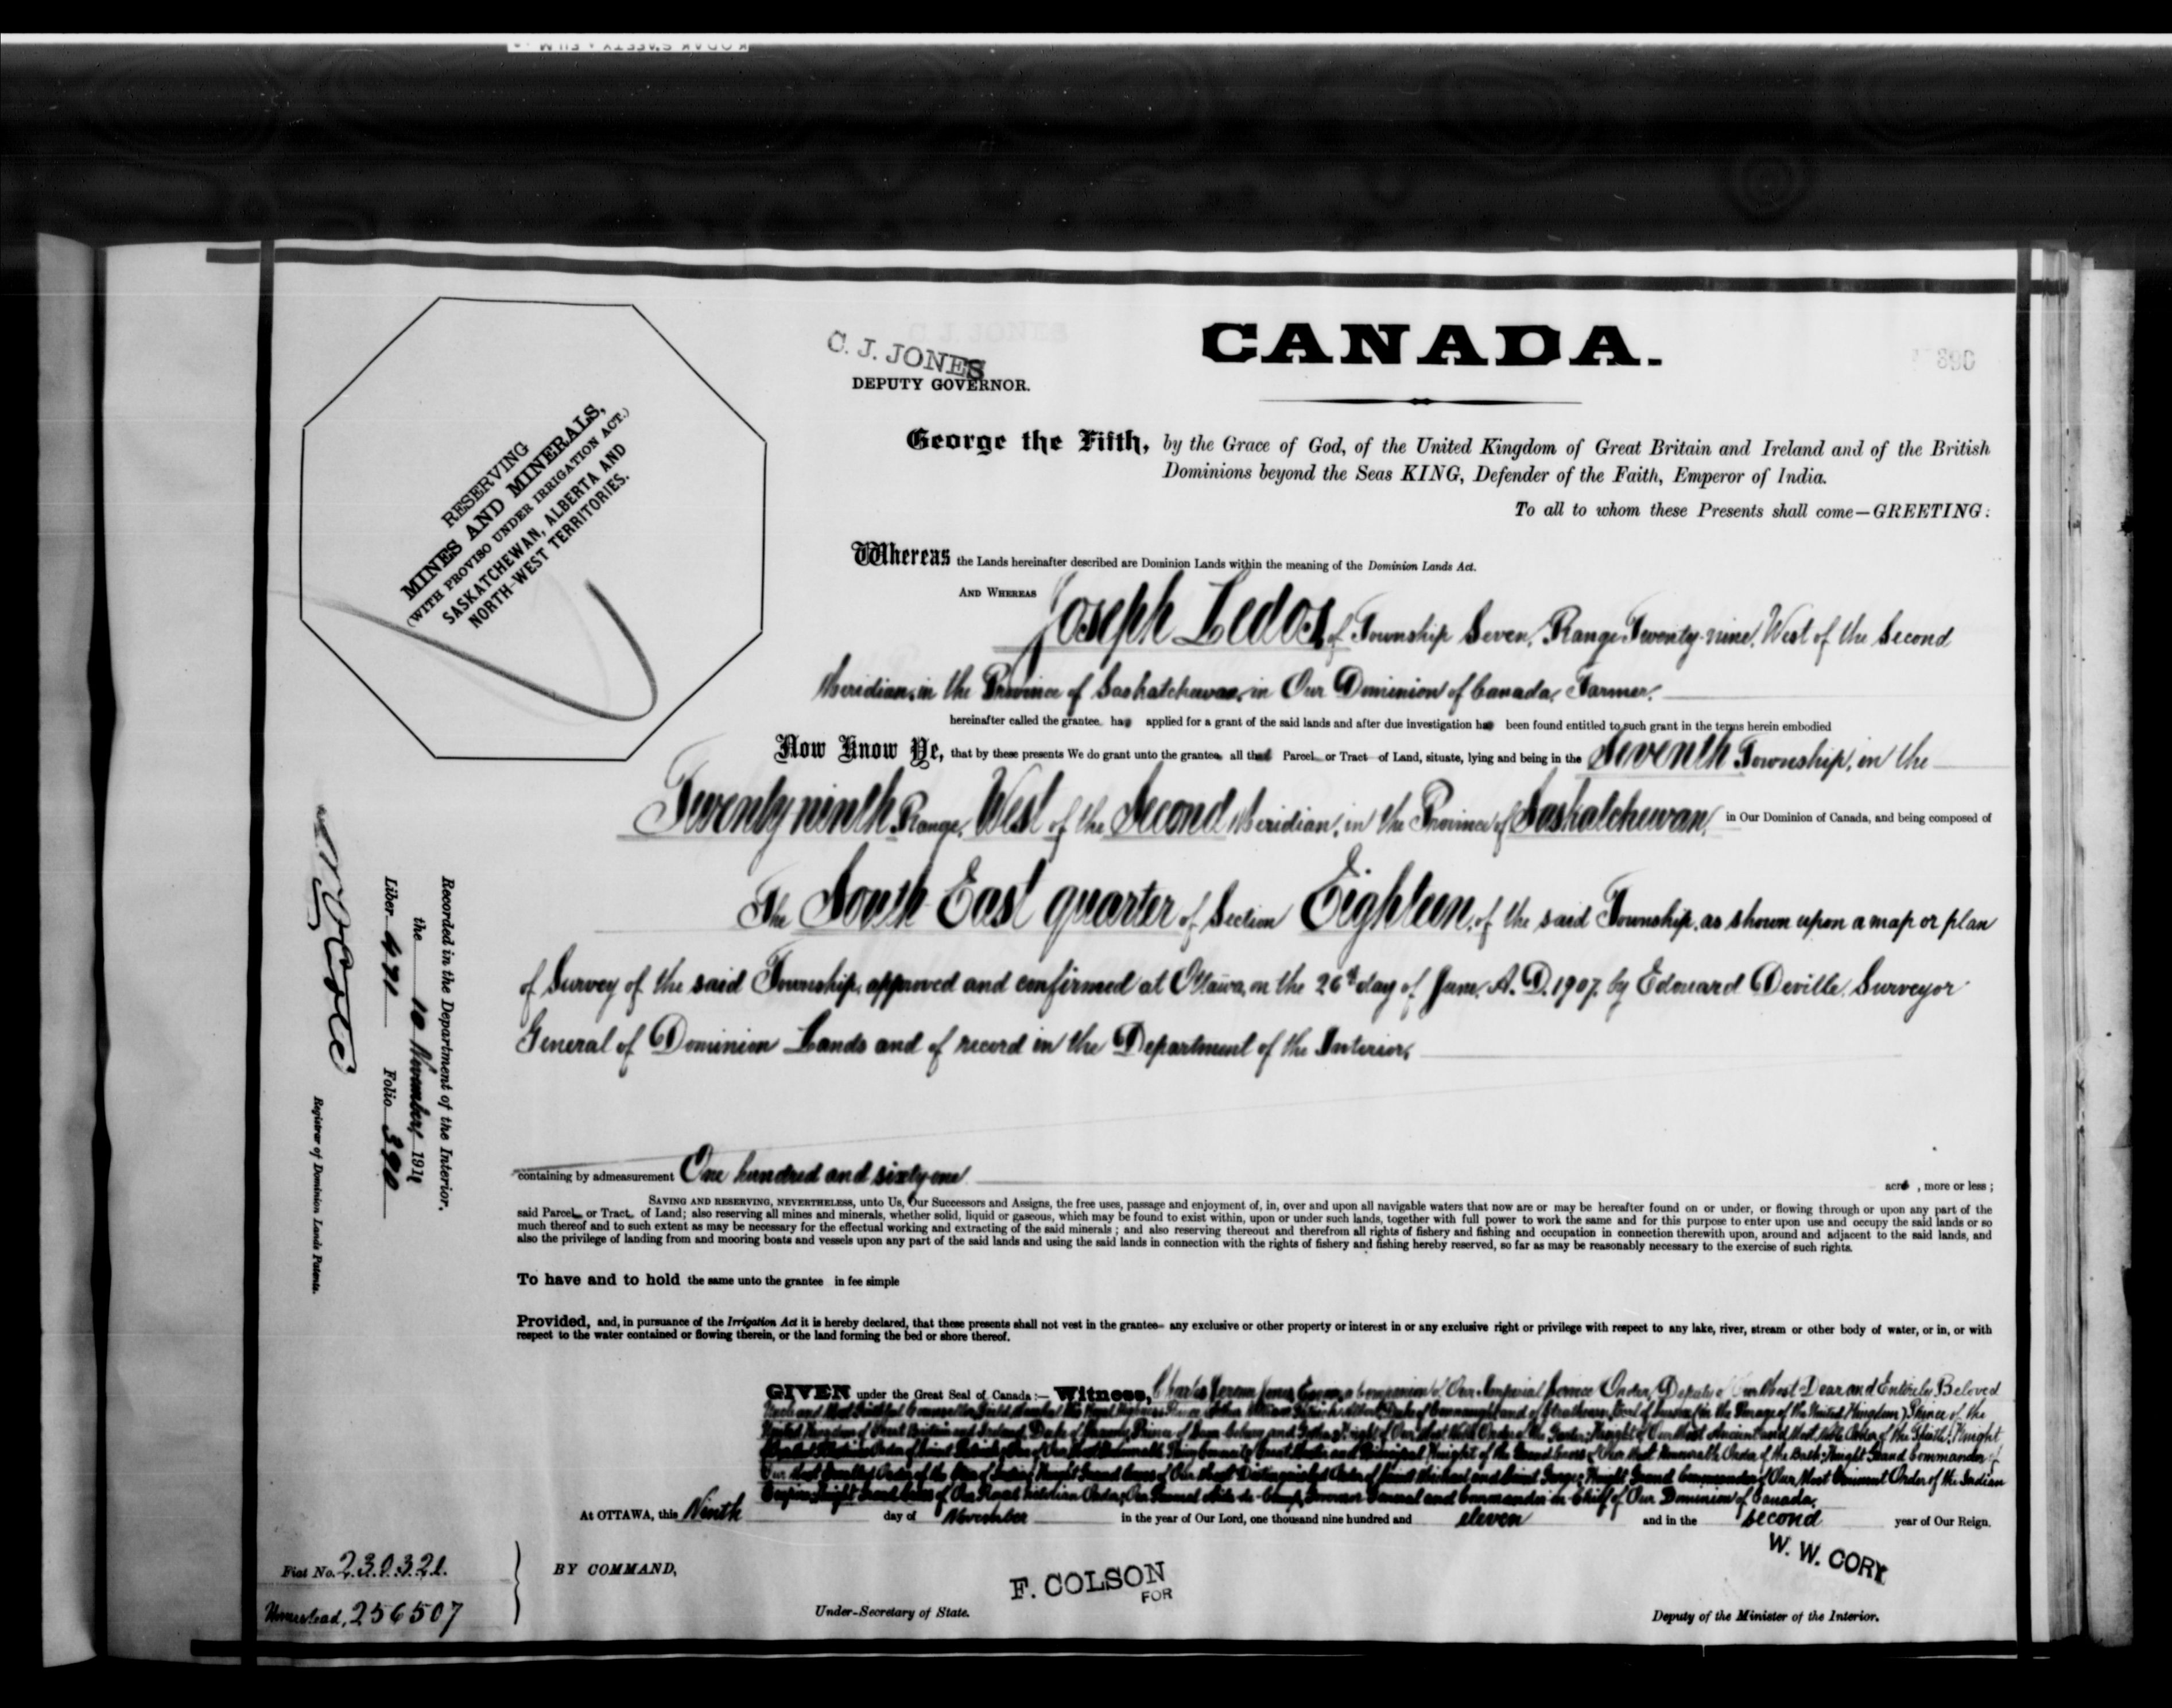 KODAK SAFETY FILM
C. J. JONES
DEPUTY GOVERNOR.
CANADA.
390
RESERVING
MINES AND MINERALS,
(WITH PROVISO UNDER IRRIGATION ACT.)
SASKATCHEWAN, ALBERTA AND
NORTH-WEST TERRITORIES.
George the Fifth, by the Grace of God, of the United Kingdom of Great Britain and Ireland and of the British
Dominions beyond the Seas KING, Defender of the Faith, Emperor of India.
To all to whom these Presents shall come—GREETING:
Whereas the Lands hereinafter described are Dominion Lands within the meaning of the Dominion Lands Act.
AND WHEREAS Joseph of Township Seven, Range Twenty-nine, West of the Second
Meridian, in the Province of Saskatchewan, in Our Dominion of Canada, Farmer.
hereinafter called the grantee has applied for a grant of the said lands and after due investigation has been found entitled to such grant in the terms herein embodied
Now Know Ye, that by these presents We do grant unto the grantee all that Parcel or Tract of Land, situate, lying and being in the Seventh Township, in the
Twenty-ninth Range, West of the Second Meridian, in the Province of Saskatchewan, in Our Dominion of Canada, and being composed of
The South East quarter of Section Eighteen, of the said Township, as shown upon a map or plan
of Survey of the said Township, approved and confirmed at Ottawa, on the 26th day of June, A.D. 1907, by Edouard Deville, Surveyor
General of Dominion Lands and of record in the Department of the Interior,
containing by admeasurement One hundred and sixty-one acres, more or less;
SAVING AND RESERVING, NEVERTHELESS, unto Us, Our Successors and Assigns, the free uses, passage and enjoyment of, in, over and upon all navigable waters that now are or may be hereafter found on or under, or flowing through or upon any part of the
said Parcel or Tract of Land; also reserving all mines and minerals, whether solid, liquid or gaseous, which may be found to exist within, upon or under such lands, together with full power to work the same and for this purpose to enter upon use and occupy the said lands or so
much thereof and to such extent as may be necessary for the effectual working and extracting of the said minerals; and also reserving thereout and therefrom all rights of fishery and fishing and occupation in connection therewith upon, around and adjacent to the said lands, and
also the privilege of landing from and mooring boats and vessels upon any part of the said lands and using the said lands in connection with the rights of fishery and fishing hereby reserved, so far as may be reasonably necessary to the exercise of such rights.
To have and to hold the same unto the grantee in fee simple
Provided, and, in pursuance of the Irrigation Act it is hereby declared, that these presents shall not vest in the grantee any exclusive or other property or interest in or any exclusive right or privilege with respect to any lake, river, stream or other body of water, or in, or with
respect to the water contained or flowing therein, or the land forming the bed or shore thereof.
GIVEN under the Great Seal of Canada:— Witness, Charles Jones, Companion of Our Imperial Service Order, Deputy of Our Most Dear and Entirely Beloved
Uncle and Most Faithful Counsellor, Field Marshal His Royal Highness Prince Arthur William Patrick Albert, Duke of Connaught and of Strathearn, Earl of Sussex (in the Peerage of the United Kingdom), Prince of the
United Kingdom of Great Britain and Ireland, Duke of Saxony, Prince of Saxe-Coburg and Gotha; Knight of Our Most Noble Order of the Garter; Knight of Our Most Ancient and Most Noble Order of the Thistle; Knight
of Our Most Honourable Privy Council; Great Master and Principal Knight of the Grand Cross of Our Most Honourable Order of the Bath; Knight Grand Commander of
Our Most Exalted Order of the Star of India; Knight Grand Cross of Our Most Distinguished Order of Saint Michael and Saint George; Knight Grand Commander of Our Most Eminent Order of the Indian
Empire; Knight Grand Cross of Our Royal Victorian Order; Our Personal Aide-de-Camp; Governor General and Commander in Chief of Our Dominion of Canada,
At OTTAWA, this Ninth day of November in the year of Our Lord, one thousand nine hundred and eleven and in the second year of Our Reign.
BY COMMAND,
F. COLSON
FOR
W. W. CORY
Under-Secretary of State.
Deputy of the Minister of the Interior.
Recorded in the Department of the Interior.
the 10 November, 1911
Liber 471 Folio 390
Registrar of Dominion Lands Patents.
Fiat No. 230321.
Homestead, 256507